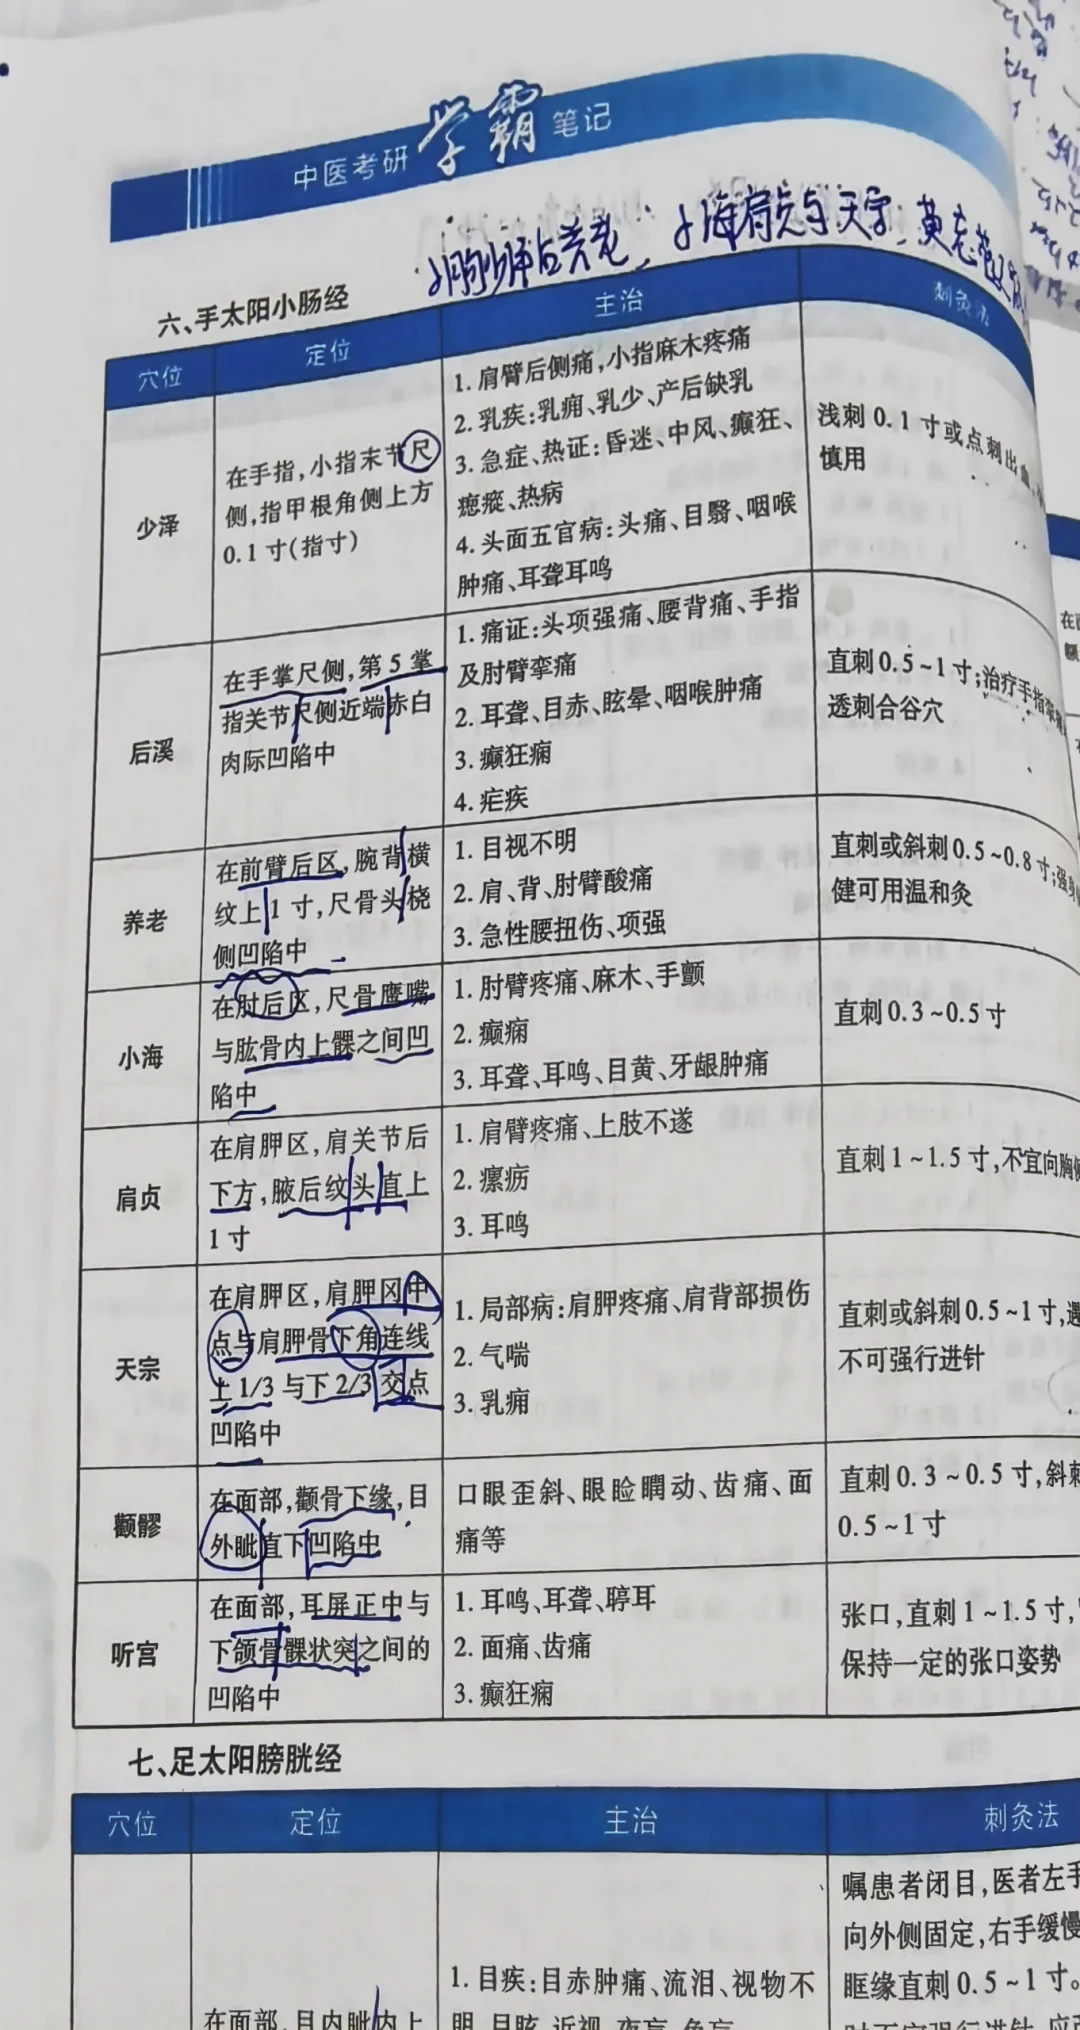 中医考研学霸笔记
六、手太阳小肠经
穴位 定位 主治 刺灸法
少泽
在手指,小指末节尺
侧,指甲根角侧上方
0.1寸(指寸)
1.肩臂后侧痛,小指麻木疼痛
2.乳疾:乳痈、乳少、产后缺乳
3.急症、热证:昏迷、中风、癫狂、
瘛疭、热病
4.头面五官病:头痛、目翳、咽喉
肿痛、耳聋耳鸣
浅刺0.1寸或点刺出血
慎用
后溪
在手掌尺侧,第5掌
指关节尺侧近端赤白
肉际凹陷中
1.痛证:头项强痛、腰背痛、手指
及肘臂挛痛
2.耳聋、目赤、眩晕、咽喉肿痛
3.癫狂痫
4.疟疾
直刺0.5~1寸;治疗手指挛
透刺合谷穴
养老
在前臂后区,腕背横
纹上1寸,尺骨头桡
侧凹陷中
1.目视不明
2.肩、背、肘臂酸痛
3.急性腰扭伤、项强
直刺或斜刺0.5~0.8寸;强身
健可用温和灸
小海
在肘后区,尺骨鹰嘴
与肱骨内上髁之间凹
陷中
1.肘臂疼痛、麻木、手颤
2.癫痫
3.耳聋、耳鸣、目黄、牙龈肿痛
直刺0.3~0.5寸
肩贞
在肩胛区,肩关节后
下方,腋后纹头直上
1寸
1.肩臂疼痛、上肢不遂
2.瘰疬
3.耳鸣
直刺1~1.5寸,不宜向胸
天宗
在肩胛区,肩胛冈中
点与肩胛骨下角连线
上1/3与下2/3交点
凹陷中
1.局部病:肩胛疼痛、肩背部损伤
2.气喘
3.乳痈
直刺或斜刺0.5~1寸,遇
不可强行进针
颧髎
在面部,颧骨下缘,目
外眦直下凹陷中
口眼歪斜、眼睑瞤动、齿痛、面
痛等
直刺0.3~0.5寸,斜刺
0.5~1寸
听宫
在面部,耳屏正中与
下颌骨髁状突之间的
凹陷中
1.耳鸣、耳聋、聤耳
2.面痛、齿痛
3.癫狂痫
张口,直刺1~1.5寸,
保持一定的张口姿势
七、足太阳膀胱经
穴位 定位 主治 刺灸法
在面部,目内眦内上
1.目疾:目赤肿痛、流泪、视物不
明、目眩、近视、夜盲、色盲
嘱患者闭目,医者左手
向外侧固定,右手缓慢
眶缘直刺0.5~1寸。